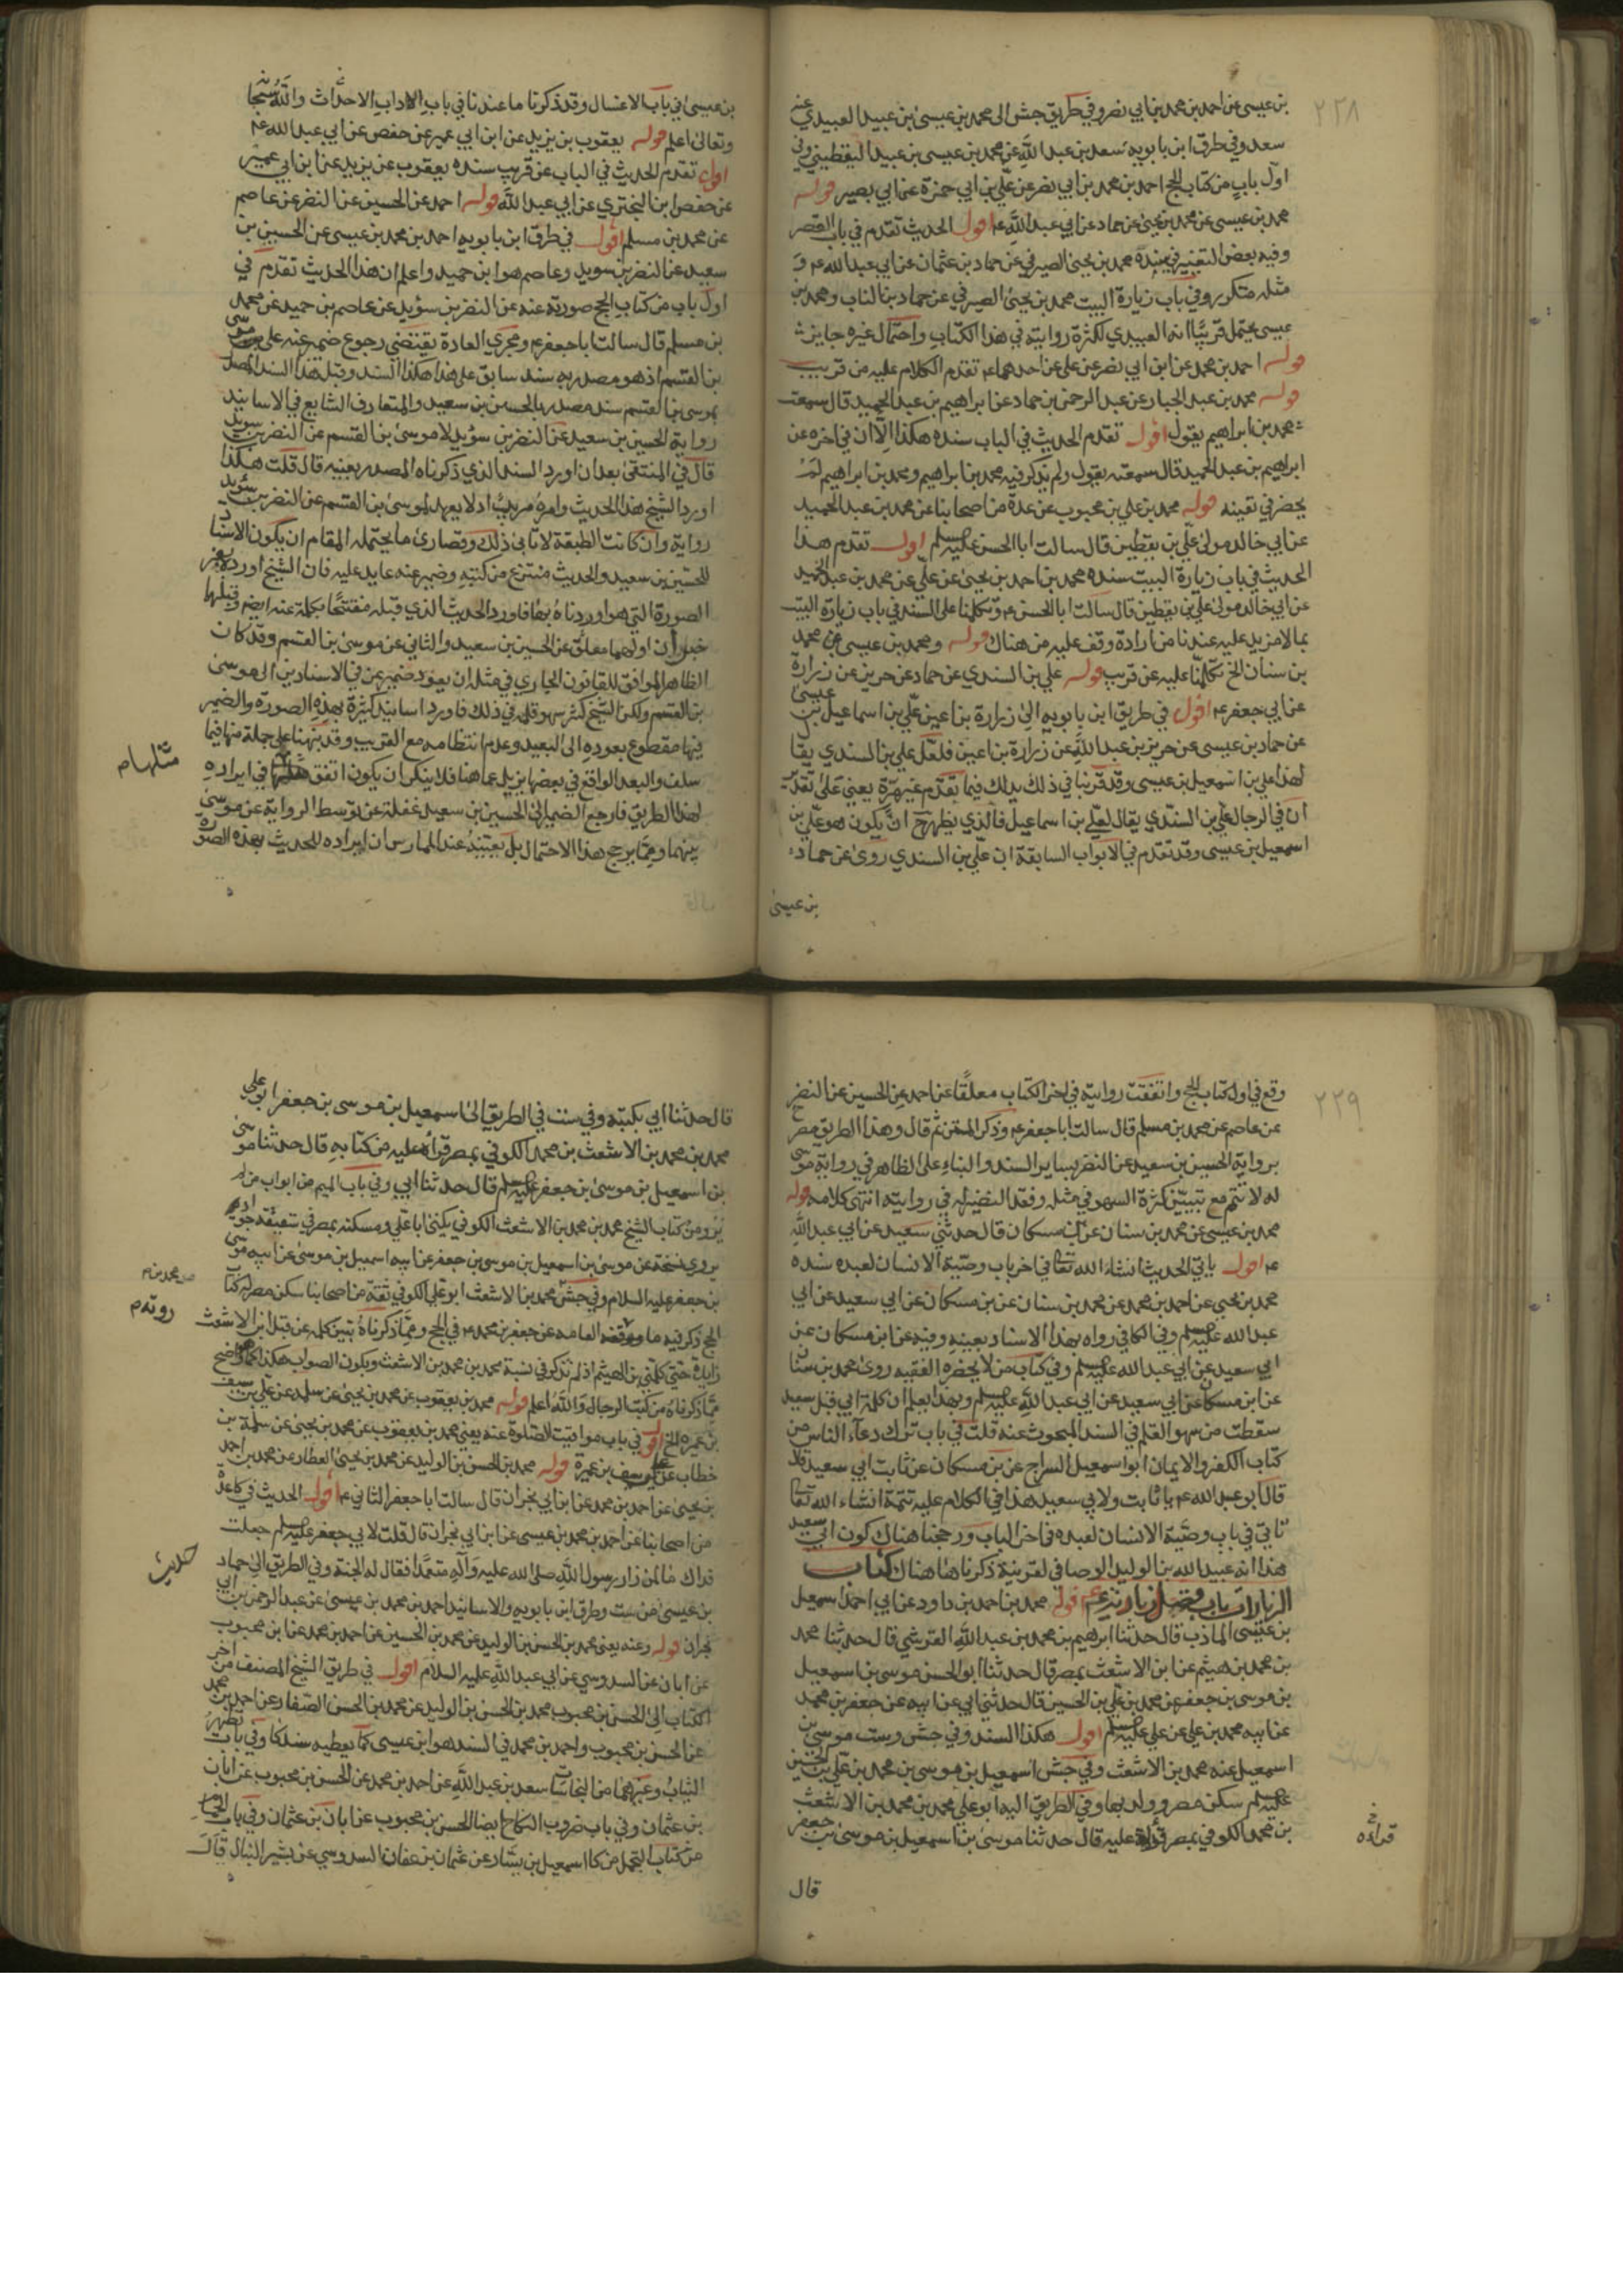 ٢٣٨
بن عيسى عن احمد بن محمد بن ابي نصر وفي طريق جش الى محمد بن عيسى بن عبيد العبيدي عنه
سعد وفي طرق ابن بابويه سعد بن عبد الله عن محمد بن عيسى بن عبيد اليقطيني وفي
اول باب من كتاب الحج احمد بن محمد بن ابي نصر عن علي بن ابي حمزة عن ابي بصير قوله
محمد بن عيسى عن محمد بن يحيى عن حماد عن ابي عبد الله ع‍ اقول الحديث تقدم في باب القصر
وفيه بعض التغيير في سنده محمد بن يحيى الصيرفي عن حماد بن عثمان عن ابي عبد الله ع‍ و
مثله متكرر وفي باب زيارة البيت محمد بن يحيى الصيرفي عن حماد بن الناب ومحمد بن
عيسى يحتمل قريبا انه العبيدي لكثرة روايته في هذا الكتاب واحتمال غيره جايز
قوله احمد بن محمد عن ابن ابي نصر عن علي عن احدهما ع‍ تقدم الكلام عليه من قريب
قوله محمد بن عبد الجبار عن عبد الرحمن بن حماد عن ابراهيم بن عبد الحميد قال سمعت
محمد بن ابراهيم يقول اقول تقدم الحديث في الباب سنده هكذا الا ان في اخره عن
ابراهيم بن عبد الحميد قال سمعته يقول ولم يذكر فيه محمد بن ابراهيم ومحمد بن ابراهيم لم
يحضرني تعينه قوله محمد بن علي بن محبوب عن عدة من اصحابنا عن محمد بن عبد الحميد
عن ابي خالد مولى علي بن يقطين قال سالت ابا الحسن عليه السلام اقول تقدم هذا
الحديث في باب زيارة البيت سنده محمد بن احمد بن يحيى عن علي عن محمد بن عبد الحميد
عن ابي خالد مولى علي بن يقطين قال سالت ابا الحسن ع‍ وتكلمنا على السند في باب زيارة البيت
بما لا مزيد عليه عندنا من اراده وقف عليه من هناك قوله ومحمد بن عيسى عن محمد
بن سنان الخ تكلمنا عليه عن قريب قوله علي بن السندي عن حماد عن حريز عن زرارة
عن ابي جعفر ع‍ اقول في طريق ابن بابويه الى زرارة بن اعين علي بن اسماعيل بن عيسى
عن حماد بن عيسى عن حريز بن عبد الله عن زرارة بن اعين فلعل علي بن السندي يقا
لهذا علي بن اسمعيل بن عيسى وقد قربنا في ذلك بذلك فيما تقدم غير مرة يعني على تقدير
ان في الرجال علي بن السندي يقال لعلي بن اسماعيل فالذي يظهر ح ان يكون هو علي بن
اسمعيل بن عيسى وقد تقدم في الابواب السابقة ان علي بن السندي روى عن حماد
بن عيسى
بن عيسى في باب الاغسال وقد ذكرنا ما عندنا في باب الاداب الاحداث والله سبحانه
وتعالى اعلم قوله يعقوب بن يزيد عن ابن ابي عمير عن حفص عن ابي عبد الله ع‍
اقول تقدم الحديث في الباب عن قريب سنده يعقوب عن يزيد عن ابن ابي عمير
عن حفص ابن البختري عن ابي عبد الله قوله احمد عن الحسين عن النضر عن عاصم
عن محمد بن مسلم اقول في طرق ابن بابويه احمد بن محمد بن عيسى عن الحسين بن
سعيد عن النضر بن سويد وعاصم هو ابن حميد واعلم ان هذا الحديث تقدم في
اول باب من كتاب الحج صورته عنه عن النضر بن سويد عن عاصم بن حميد عن محمد
بن مسلم قال سالت ابا جعفر ع‍ ومجرى العادة يقتضي رجوع ضمير عنه على موسى
بن القسم اذ هو مصدر به سند سابق على هذا هكذا السند وقبل هذا السند المصدر
بموسى بن القسم سند مصدر بالحسين بن سعيد والمتعارف الشايع في الاسانيد
رواية الحسين بن سعيد عن النضر بن سويد لا موسى بن القسم عن النضر بن سويد
قال في المنتقى بعد ان اورد السند الذي ذكرناه المصدر بعينه قال قلت هكذا
اورد الشيخ هذا الحديث وامره مريب اذ لا يعهد لموسى بن القسم عن النضر بن سويد
رواية وان كانت الطبقة لا تابى ذلك وقصارى ما يحتمله المقام ان يكون الاسناد
للحسين بن سعيد والحديث منتزع من كتبه وضمير عنه عايد عليه فان الشيخ اورده بغير
الصورة التي هو اوردناه بها فاورد الحديث الذي قبله مفتتحا بكلمة عنه ايضا وقبلها
خبران اولهما معلق عن الحسين بن سعيد والثاني عن موسى بن القسم وقد كان
الظاهر الموافق للقانون الجاري في مثله ان يعود ضمير عن في الاسنادين الى موسى
بن القسم ولكن الشيخ كثر سهو قلمه في ذلك فاورد اسانيد كثيرة بهذه الصورة والضمير
فيها مقطوع بعوده الى البعيد وعدم انتظامه مع القريب وقد نبهنا على جملة منها فيما
سلف والبعد الواقع في بعضها يزيل عما هنا فلا ينكر ان يكون اتفق مثلها في ايراده
مثلها م
لهذا الطريق فارجع الضمير الى الحسين بن سعيد غفلة عن توسط الرواية عن موسى
بينهما ومما يرجح هذا الاحتمال بل يعينه عند الممارس ان ايراده للحديث بهذه الصورة
٢٣٩
وقع في اول كتاب الحج واتفقت روايته في اخر الكتاب معلقا عن احمد عن الحسين عن النضر
عن عاصم عن محمد بن مسلم قال سالت ابا جعفر ع‍ وذكر المتن ثم قال وهذا الطريق مصرح
برواية الحسين بن سعيد عن النضر بساير السند والبناء على الظاهر في رواية موسى
له لا تتم مع تبيين كثرة السهو في مثله وفقد النضير له في روايته انتهى كلامه قوله
محمد بن عيسى عن محمد بن سنان عن ابن مسكان قال حدثني سعيد عن ابي عبد الله
ع‍ اقول ياتي الحديث انشاء الله تعالى في اخر باب وصية الانسان لعبده سنده
محمد بن يحيى عن احمد بن محمد عن محمد بن سنان عن بن مسكان عن ابي سعيد عن ابي
عبد الله عليه السلام وفي الكافي رواه بهذا الاسناد بعينه وفيه عن ابن مسكان عن
ابي سعيد عن ابي عبد الله عليه السلام وفي كتاب من لا يحضره الفقيه روى محمد بن سنان
عن ابن مسكان عن ابي سعيد عن ابي عبد الله عليه السلام وبهذا يعلم ان كلمة ابي قبل سعيد
سقطت من سهو القلم في السند المبحوث عنه قلت في باب ترك دعاء الناس من
كتاب الكفر والايمان ابو اسمعيل السراج عن بن مسكان عن ثابت ابي سعيد قال
قال ابو عبد الله ع‍ يا ثابت ولابي سعيد هذا في الكلام عليه تتمة انشاء الله تعالى
تاتي في باب وصية الانسان لعبده في اخر الباب ورجحنا هناك كون ابي سعيد
هذا انه عبيد الله بن الوليد الوصافي لقرينة ذكرناها هناك كتاب
الزيارات باب فضل زيارته ع‍ قوله محمد بن احمد بن داود عن ابي احمد اسمعيل
بن عيسى الماذب قال حدثنا ابرهيم بن محمد بن عبد الله القرشي قال حدثنا محمد
بن محمد بن هيثم عن ابن الاشعث بمصر قال حدثنا ابو الحسن موسى بن اسمعيل
بن موسى بن جعفر عن محمد بن علي بن الحسين قال حدثني ابي عن ابيه عن جعفر بن محمد
عن ابيه محمد بن علي عن علي عليه السلام اقول هكذا السند وفي جش وست موسى بن
اسمعيل عنه محمد بن الاشعث وفي جش اسمعيل بن موسى بن محمد بن علي بن الحسين
عليه السلام سكن مصر وولد بها وفي الطريق اليه ابو علي محمد بن محمد بن الاشعث
بن محمد الكوفي بمصر قراءة عليه قال حدثنا موسى بن اسمعيل بن موسى بن جعفر
قراءة خ
قال
قال حدثنا ابي بكتبه وفي ست في الطريق الى اسمعيل بن موسى بن جعفر ابو علي
محمد بن محمد بن الاشعث بن محمد الكوفي بمصر قراءه عليه من كتابه قال حدثنا موسى
بن اسمعيل بن موسى بن جعفر عليه السلام قال حدثنا ابي وفي باب الميم من ابواب من لم
يرو من كتاب الشيخ محمد بن محمد بن الاشعث الكوفي يكنى ابا علي ومسكنه بمصر في سقيفة جواد
يروي نسخة عن موسى بن اسمعيل بن موسى بن جعفر عن ابيه اسمعيل بن موسى عن ابيه موسى
بن جعفر عليه السلام وفي جش محمد بن الاشعث ابو علي الكوفي ثقة من اصحابنا سكن مصر له كتاب
بن محمد م
الحج ذكر فيه ما روته العامه عن جعفر بن محمد ع‍ في الحج ومما ذكرناه تبين كلمه عن قبل ابن الاشعث
روته م
زايدة حتى كلمتي بن الهيثم اذ لم تذكر في نسبة محمد بن محمد بن الاشعث ويكون الصواب هكذا كما هو واضح
مما ذكرناه من كتب الرجال والله اعلم قوله محمد بن يعقوب عن محمد بن يحيى عن سلمه عن علي بن سيف
بن عميره الخ اقول في باب مواقيت الصلوة عنه يعني محمد بن يعقوب عن محمد بن يحيى عن سلمة بن
خطاب عن علي بن سيف بن عميرة قوله محمد بن الحسن بن الوليد عن محمد بن يحيى العطار عن محمد بن احمد
بن يحيى عن احمد بن محمد عن ابن ابي نجران قال سالت ابا جعفر الثاني ع‍ اقول الحديث في كا عدة
من اصحابنا عن احمد بن محمد بن عيسى عن ابن ابي نجران قال قلت لابي جعفر عليه السلام جعلت
فداك ما لمن زار رسول الله صلى الله عليه وآله متعمدا فقال له الجنة وفي الطريق الى حماد
حديث
بن عيسى من ست وطرق ابن بابويه والاسانيد احمد بن محمد بن عيسى عن عبد الرحمن بن ابي
نجران قوله وعنه يعني محمد بن الحسن بن الوليد عن محمد بن الحسين عن احمد بن محمد عن ابن محبوب
عن ابان عن السدوسي عن ابي عبد الله عليه السلام اقول في طريق الشيخ المصنف من اخر
الكتاب الى الحسن بن محبوب محمد بن الحسن بن الوليد عن محمد بن الحسن الصفار عن احمد بن محمد
عن الحسن بن محبوب واحمد بن محمد في السند هو ابن عيسى كما يعطيه سند كا وفي باب تطهير
الثياب وغيرهما من النجاسات سعد بن عبد الله عن احمد بن محمد عن الحسن بن محبوب عن ابان
بن عثمان وفي باب ضروب النكاح ايضا الحسن بن محبوب عن ابان بن عثمان وفي باب الحمام
من كتاب التجمل من كا اسمعيل بن يسار عن عثمان بن عفان السدوسي عن بشير النبال قال